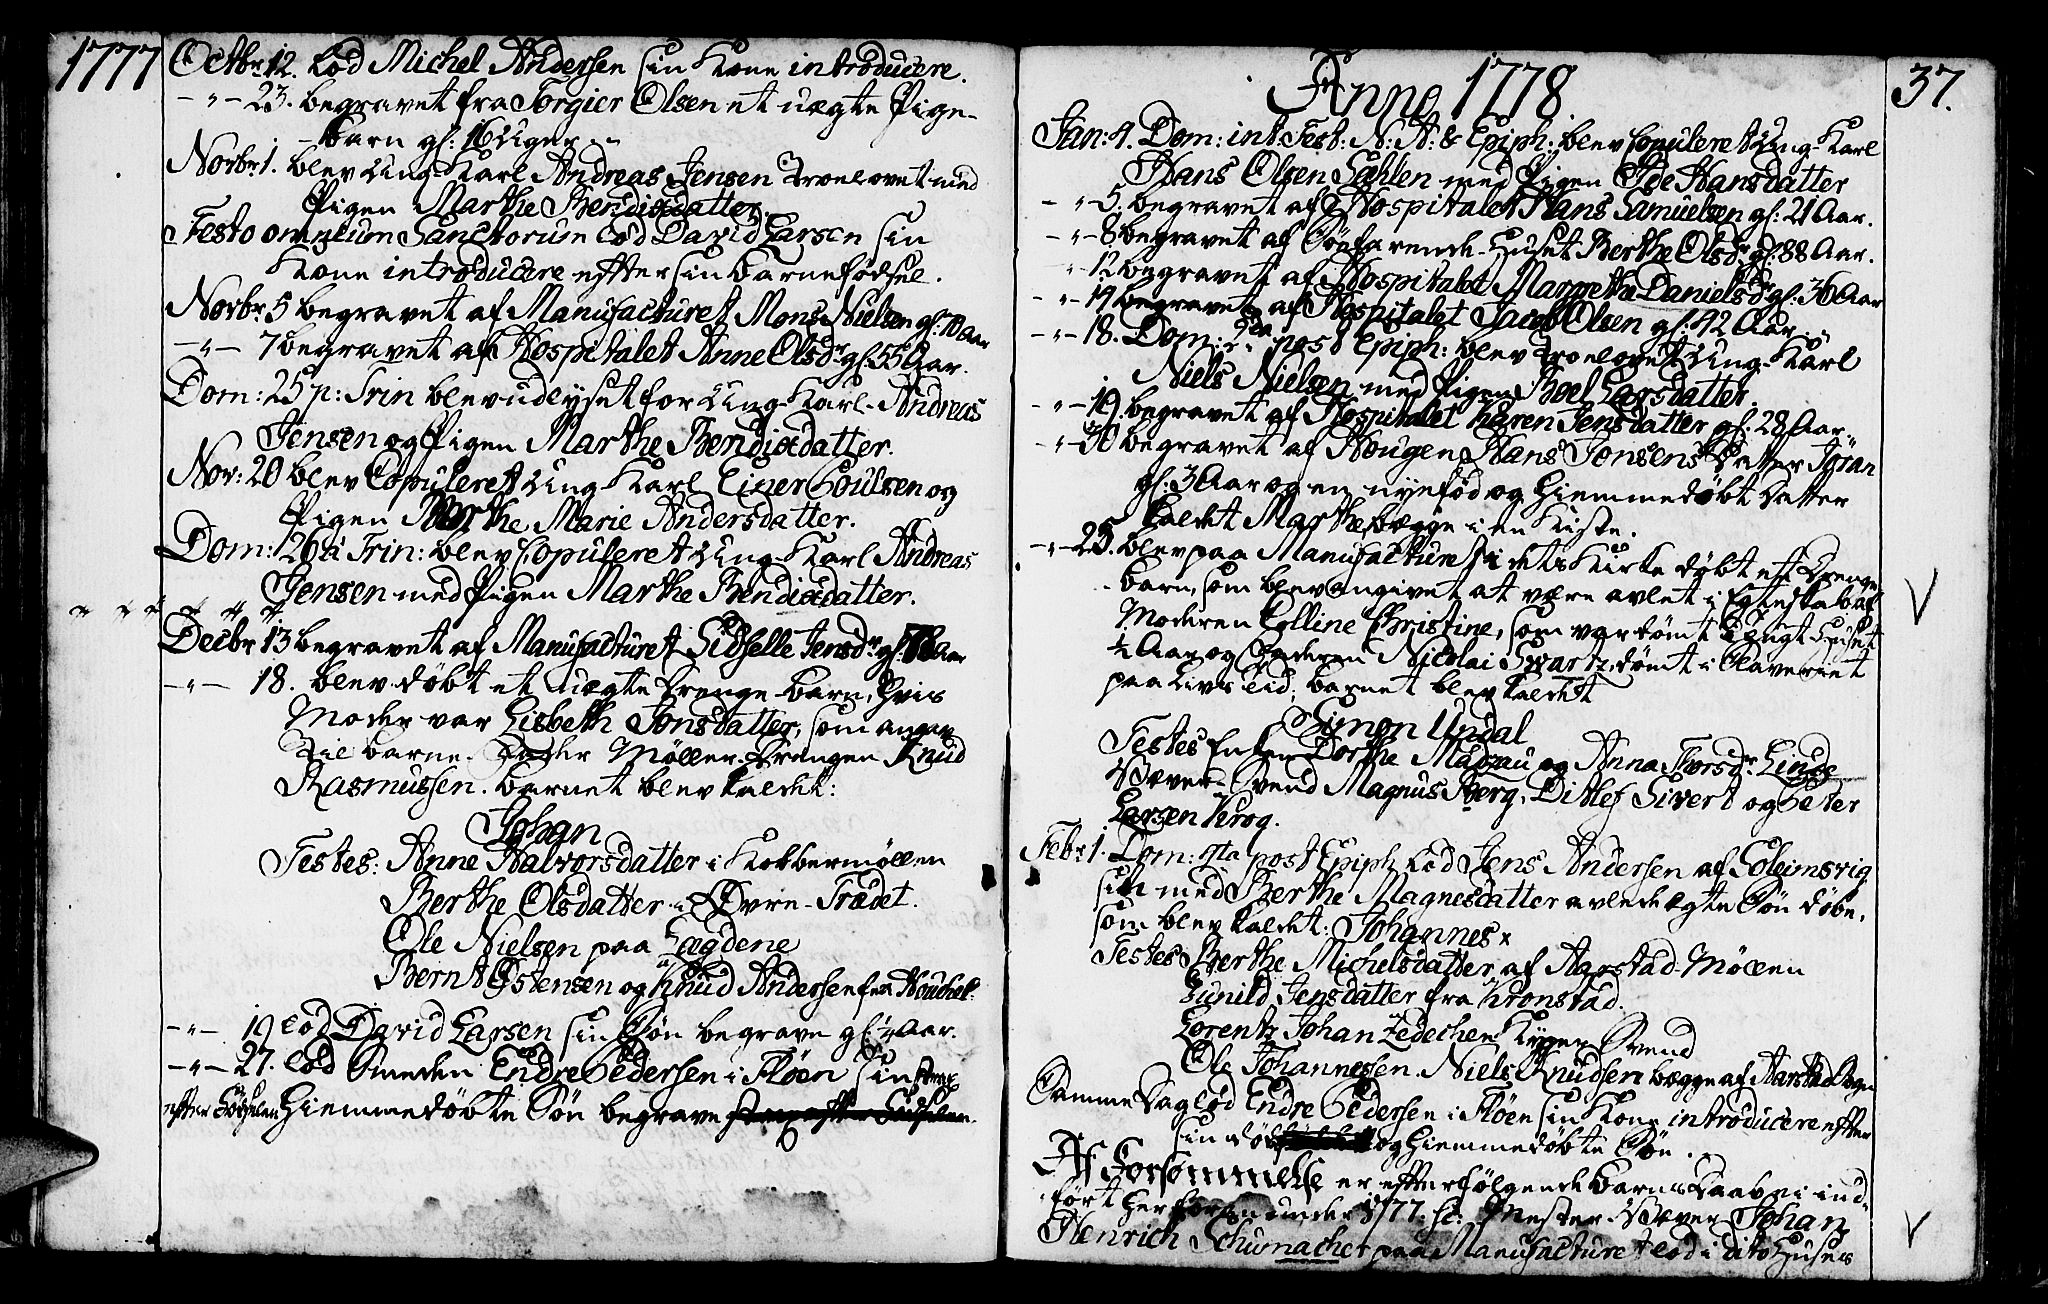 1777
Octbr: 12. lod Michel Andersen sin Kone introducere.
-"- 23. begravet fra Torgier Olsen et uægte Pige-
barn gl: 16 Uger
Novbr: 1. blev Ung-Karl Andreas Jensen Troelovet med
Pigen Marthe Bendixdatter.
Festo omnium Sanctorum lod David Larsen sin
Kone introducere efter sin barnefødsel.
Novbr: 5 begravet af Manufacturet Mons Nielsen gl: Aar
-"- 7 begravet af Hospitalet Anne Olsdr gl: 55 Aar.
Dom: 25 p: Trin blev udlyset for Ung-Karl Andreas
Jensen og Pigen Marthe Bendixdatter.
Nov: 20 blev Copuleret Ung Karl Einer Poulsen og
Pigen Marthe Marie Andersdatter.
Dom: 26 à Trin: blev Copuleret Ung-Karl Andreas
Jensen med Pigen Marthe Bendixdatter.
Decbr 13 begravet af Manufacturet Sidselle Jensdr gl: Aar
-"- 18. blev døbt et uægte Drenge barn, hvis
Moder var Lisbeth Jonsdatter, som angav
til barne-Fader Møller-Drengen Knud
Rasmussen. barnet blev kaldet:
Johan
Testes: Anne Halvorsdatter i Kobbermøllen
Berthe Olsdatter i Øvre-Trædet.
Ole Nielsen paa Lægdene
Bernt Østensen og Knud Andersen fra
-"- 19 lod David Larsen sin Søn begrave gl: Aar.
-"- 27. lod Smeden Endre Pedersen i Fløen sin strax
efter Fødselen Hiemmedøbte Søn begrave strax efter Fødselen.
37.
Anno 1778
Jan: 4. Dom: int: Fest: N: A: & Epiph: blev Copuleret Ung-Karl
Hans Olsen Sahlen med Pigen Ide Hansdatter
-"- 5. begravet af Hospitalet Hans Samuelsen gl: 21 Aar.
-"- 8. begravet af Søefarende-Huset Berthe Olsdr gl: 88 Aar.
-"- 12 begravet af Hospitalet Margrethe Danielsdr gl: 36 Aar
-"- 14 begravet af Hospitalet Jacob Olsen gl: 42 Aar.
-"- 18. Dom: 2da post Epiph: blev Troelovet Ung-Karl
Niels Nielsen med Pigen Boel Larsdatter.
-"- 19. begravet af Hospitalet Karen Jensdatter gl: 28 Aar.
-"- 20 begravet af Hougen Hans Jonsens Datter Jøran
gl: 3 Aar og en nyefød og Hiemmedøbt Datter
kaldet Marthe, begge i en Kiste.
-"- 25. blev paa Manufacturet i dets Kirke døbt et Drenge
barn, som blev angivet at være avlet i Egteskab af
Moderen Elline Christine, som var dømt i Tugt Huset
½ Aar, og Faderen Nicolai Svartz dømt i Slaveriet
paa Livs tid; barnet blev kaldet
Simon Undal
Testes Enken Dorthe Madzau og Anna Thorsdr Linde
Væver-Svend Magnus Berg, Ditlef Sivert og Peter
Larsen Krog.
Febr: 1. Dom: 4ta post Epiph. lod Jens Andersen af Soleimsvig
sin med Berthe Magnesdatter avlede ægte Søn døbe,
som blev kaldet: Johannes
Testes Berthe Michelsdatter af Aarstad-Møllen
Gunild Jensdatter fra Kronstad.
Lorentz Johan Zedechen Kyper Svend
Ole Johannesen. Niels Knudsen begge af Aarstad Sogn
Samme Dag lod Endre Pedersen i Fløen sin Kone introducere efter
sin død og Hiemmedøbte Søn.
Af Forsømmelse er efterfølgende barns Daab ei ind-
ført her foran under 1777. sc: Mester-Væver Johan
Henrich Schumacher paa Manufacturet lod i dito Huses